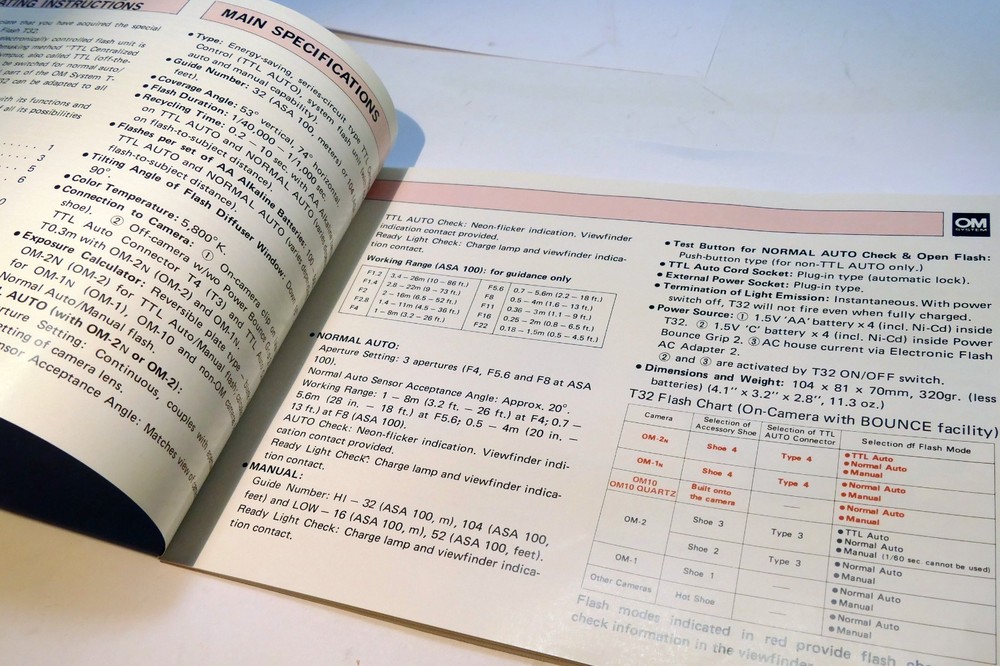 ATING INSTRUCTIONS
that you have acquired the special
Flash T32.
electronically controlled flash unit is
making method "TTL Centralized
also called TTL (off-the-
be switched for normal auto/
part of the OM System T-
can be adapted to all
with its functions and
all its possibilities
1
3
5
6
MAIN SPECIFICATIONS
• Type: Energy-saving, series-circuit type TTL
Control (TTL AUTO), system flash unit
auto and manual capability).
• Guide Number: 32 (ASA 100, meters) or 104
feet).
• Coverage Angle: 53° vertical, 74° horizontal.
• Flash Duration: 1/40,000 – 1/1,000 sec.
• Recycling Time: 0.2 – 10 sec. with AA Alkaline
on TTL AUTO and NORMAL AUTO (varies
on flash-to-subject distance).
• Flashes per set of AA Alkaline Batteries: 100
TTL AUTO and NORMAL AUTO (varies
flash-to-subject distance).
• Tilting Angle of Flash Diffuser Window: Down
90°.
• Color Temperature: 5,800°K.
• Connection to Camera: ① On-camera (clip on
shoe). ② Off-camera w/wo Power Bounce
TTL Auto Connector T4 (T3) and TTL
T0.3m with OM-2N (OM-2), OM-1N
• Exposure Calculator: Reversible plate type
OM-2N (OM-2) for TTL Auto/Manual flash,
for OM-1N (OM-1), OM-10 and non-OM
Normal Auto/Manual flash,
AUTO (with OM-2N or OM-2):
Setting: Continuous, couples with
setting of camera lens.
Sensor Acceptance Angle: Matches view of
TTL AUTO Check: Neon-flicker indication. Viewfinder
indication contact provided.
Ready Light Check: Charge lamp and viewfinder indica-
tion contact.
Working Range (ASA 100): for guidance only
F1.2 3.4 – 26m (10 – 86 ft) F5.6 0.7 – 5.6m (2.2 – 18 ft.)
F1.4 2.8 – 22m (9 – 73 ft.) F8 0.5 – 4m (1.6 – 13 ft.)
F2 2 – 16m (6.5 – 52 ft.) F11 0.36 – 3m (1.1 – 9 ft.)
F2.8 1.4 – 11m (4.5 – 36 ft.) F16 0.25 – 2m (0.8 – 6.5 ft.)
F4 1 – 8m (3.2 – 26 ft.) F22 0.18 – 1.5m (0.5 – 4.5 ft.)
• NORMAL AUTO:
Aperture Setting: 3 apertures (F4, F5.6 and F8 at ASA
100).
Normal Auto Sensor Acceptance Angle: Approx. 20°.
Working Range: 1 – 8m (3.2 ft. – 26 ft.) at F4; 0.7 –
5.6m (28 in. – 18 ft.) at F5.6; 0.5 – 4m (20 in. –
13 ft.) at F8 (ASA 100).
AUTO Check: Neon-flicker indication. Viewfinder indi-
cation contact provided.
Ready Light Check: Charge lamp and viewfinder indica-
tion contact.
• MANUAL:
Guide Number: HI – 32 (ASA 100, m), 104 (ASA 100,
feet) and LOW – 16 (ASA 100, m), 52 (ASA 100, feet).
Ready Light Check: Charge lamp and viewfinder indica-
tion contact.
OM
SYSTEM
• Test Button for NORMAL AUTO Check & Open Flash:
Push-button type (for non-TTL AUTO only.)
• TTL Auto Cord Socket: Plug-in type (automatic lock).
• External Power Socket: Plug-in type.
• Termination of Light Emission: Instantaneous. With power
switch off, T32 will not fire even when fully charged.
• Power Source: ① 1.5V 'AA' battery x 4 (incl. Ni-Cd) inside
T32. ② 1.5V 'C' battery x 4 (incl. Ni-Cd) inside Power
Bounce Grip 2. ③ AC house current via Electronic Flash
AC Adapter 2.
② and ③ are activated by T32 ON/OFF switch.
• Dimensions and Weight: 104 x 81 x 70mm, 320gr. (less
batteries) (4.1" x 3.2" x 2.8", 11.3 oz.)
T32 Flash Chart (On-Camera with BOUNCE facility)
Camera Selection of Accessory Shoe Selection of TTL AUTO Connector Selection of Flash Mode
OM-2N Shoe 4 Type 4 • TTL Auto
• Normal Auto
• Manual
OM-1N Shoe 4 Type 4 • Normal Auto
• Manual
OM10 OM10 QUARTZ Built onto the camera — • Normal Auto
• Manual
OM-2 Shoe 3 Type 3 • TTL Auto
• Normal Auto
• Manual (1/60 sec. cannot be used)
Shoe 2 Type 3 • Normal Auto
• Manual
OM-1 Shoe 1 — • Normal Auto
• Manual
Other Cameras Hot Shoe — • Normal Auto
• Manual
Flash modes indicated in red provide flash
check information in the viewfinder